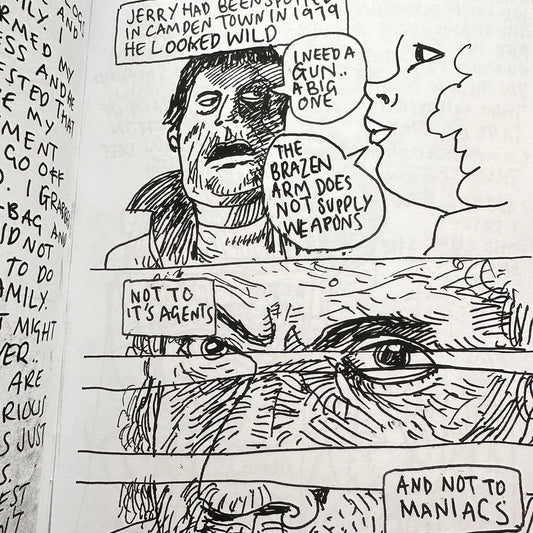 MILY. I
AND
RMED MY
ESS AND HE
ESTED THAT
E MY
MENT
GO OFF
D. I GRABBED
-BAG AND
ID NOT
TO DO
AMILY.
T MIGHT
VER..
ARE
RIOUS
S JUST
S.
EST
JERRY HAD BEEN SPOTTED
IN CAMDEN TOWN IN 1979
HE LOOKED WILD
I NEED A
GUN..
A BIG
ONE
THE
BRAZEN
ARM DOES
NOT SUPPLY
WEAPONS
NOT TO
IT'S AGENTS
AND NOT TO
MANIACS